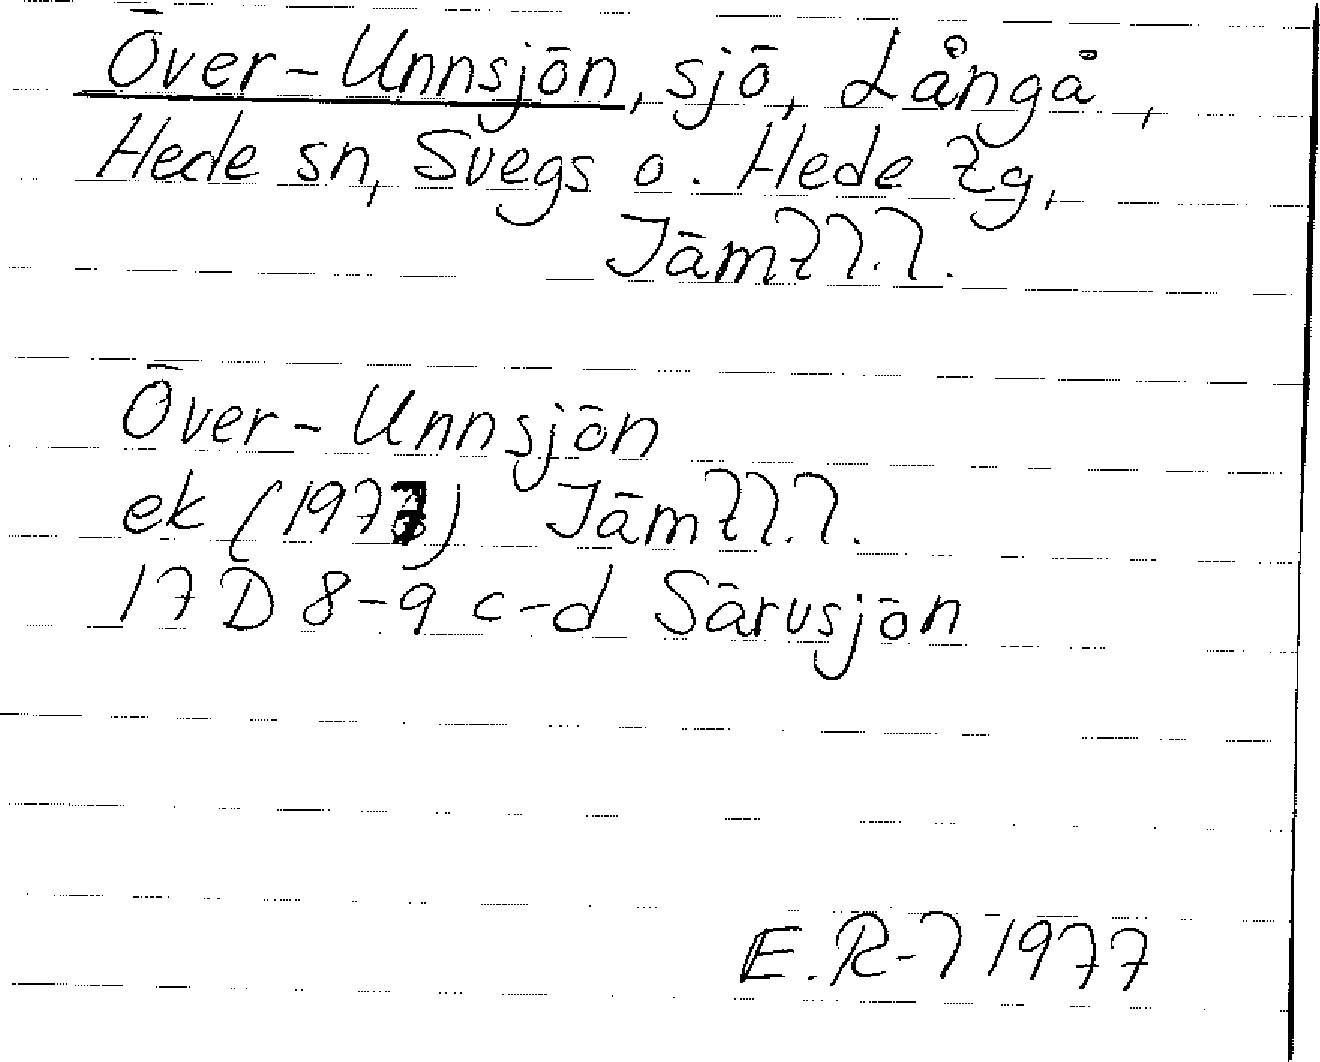 Över-Unnsjön, sjö, Långå,
Hede sn, Svegs o. Hede tg,
Jämtl.l.
Över-Unnsjön
ek (1977) Jämtl.l.
17 D 8-9 c-d Särvsjön
E.R-l 1977